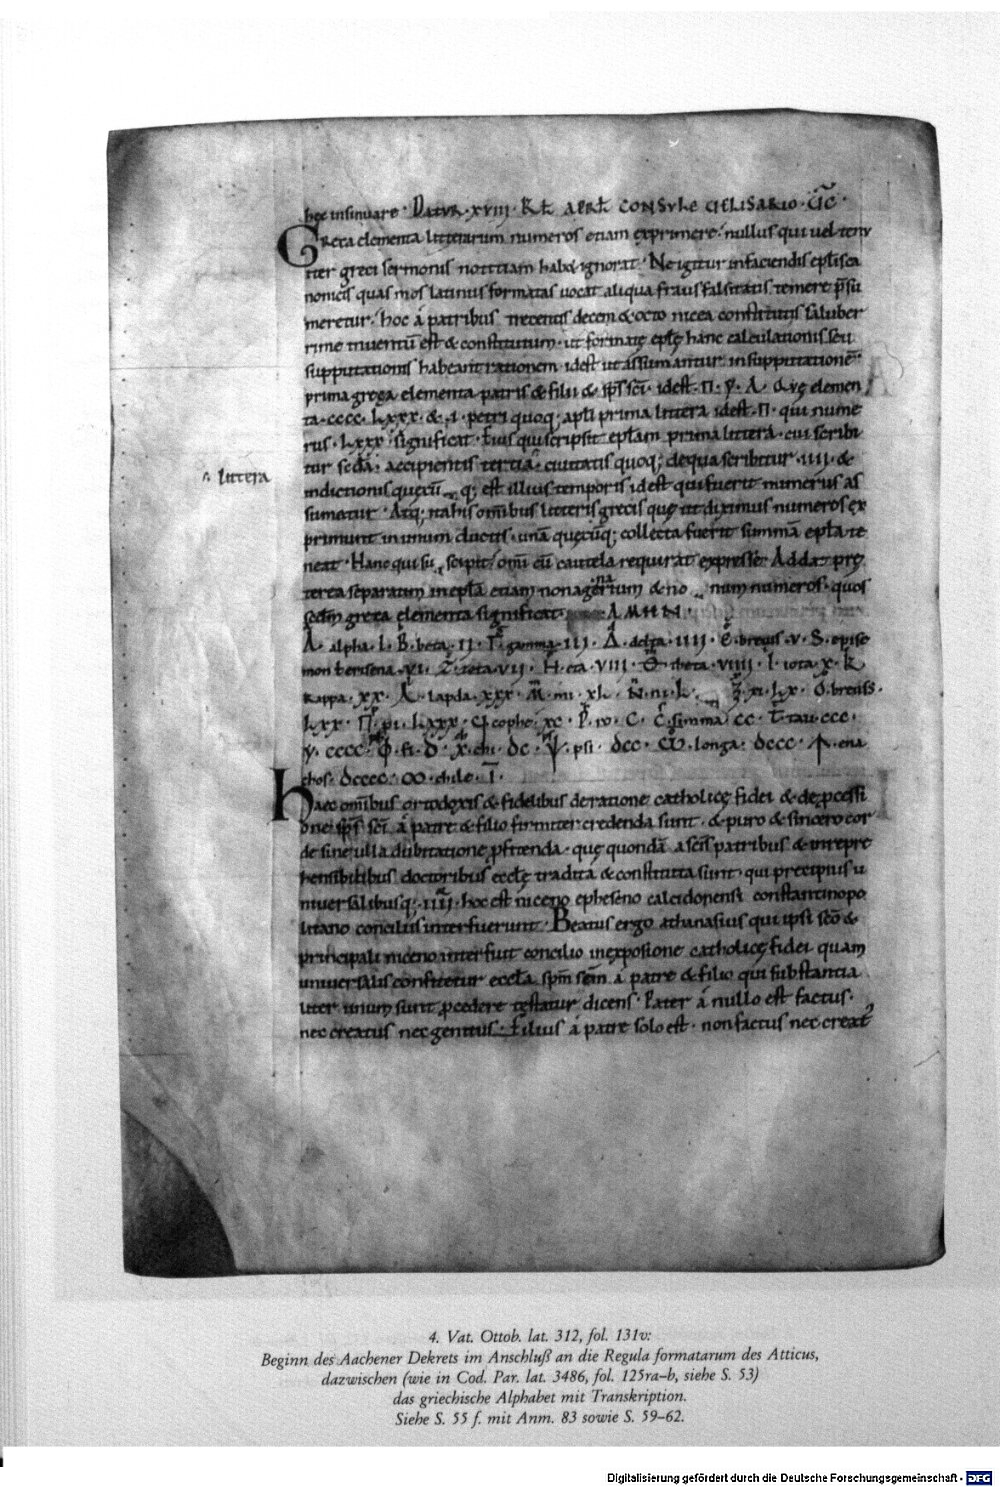 hęc insinuare · Datum · xviii · Kł aprł consule belisario · v̄c̄ ·
Greca elementa litterarum numeros etiam exprimere · nullus qui uel tenu
iter greci sermonis notitiam habet ignorat · Ne igitur infaciendis eplis ca
nonicis quas mos latinus formatas uocat aliqua fraus falsitatis temere p̄su
meretur · hoc á patribus trecentis decem & octo nicea constitutis saluber
rime inuentū est & constitutum · ut formatę eplę hanc calculationis seu
supputationis habeant rationem · idest ut assumantur insupputationē
prima gręca elementa patris & filii & sp̄s sc̄i · idest · Π · Y · A · elemen
ta · cccc · lxxx · & · i · petri quoq; apl̄i prima littera idest · Π · qui nume
rus · lxxx · significat · Eius qui scripsit epłam prima littera · cui scribi
tur sc̄da · accipientis tertia · ciuitatis quoq; dequa scribitur · iiii · &
⸫ littera
indictionis quęcū q; est illius temporis idest qui fuerit numerus as
sumatur · Atq; ita his omībus litteris grecis quę ut diximus numeros ex
primunt in unum ductis · unā quęcūq; collecta fuerit summā epła te
neat · Hanc qui suscipit omī cū cautela requirat expresse · Addat prę
terea separatim in epła etiam nonagenarium & no num numeros · quos
sc̄dm gręca elementa significat · ΑΜΗΝ ·
A · alpha · I · B · beta · II · Γ · gamma · III · Δ · delta · IIII · E · breuis · v · S · epise
mon · vi · Z · zeta · vii · H · eta · viii · Θ · theta · viiii · I · iota · x · K
kappa · xx · Λ · lapda · xxx · M · mi · xl · N · ni · l · Ξ · xi · lx · O · breuis ·
lxx · Π · pi · lxxx · cophe · xc · P · ro · c · C · simma · cc · T · tau · ccc ·
Y · cccc · Φ · fi · D · X · chi · DC · Ψ · psi · dcc · Ω · longa · dccc · ena
chos · dcccc · ∞ · chile · Ī ·
Haec omībus ortodoxis & fidelibus de ratione catholicę fidei & de p̄cessi
one sp̄s sc̄i á patre & filio firmiter credenda sunt · & puro & sincero cor
de sine ulla dubitatione p̄fitenda · quę quondā a sc̄is patribus & inrepre
hensibilibus doctoribus eccłę tradita & constituta sunt · qui precipuis u
niuersalibusq; · iiii · hoc est niceno epheseno calcidonensi constantinopo
litano conciliis interfuerunt · Beatus ergo athanasius qui ipsi sc̄o &
principali niceno interfuit concilio in exposione catholicę fidei quam
uniuersalis confitetur eccła sp̄m sc̄m á patre & filio qui substantia
liter unum sunt p̄cedere testatur dicens · Pater á nullo est factus ·
nec creatus nec genitus · Filius á patre solo est · non factus nec creat'
4. Vat. Ottob. lat. 312, fol. 131v:
Beginn des Aachener Dekrets im Anschluß an die Regula formatarum des Atticus,
dazwischen (wie in Cod. Par. lat. 3486, fol. 125ra–b, siehe S. 53)
das griechische Alphabet mit Transkription.
Siehe S. 55 f. mit Anm. 83 sowie S. 59–62.
Digitalisierung gefördert durch die Deutsche Forschungsgemeinschaft · DFG